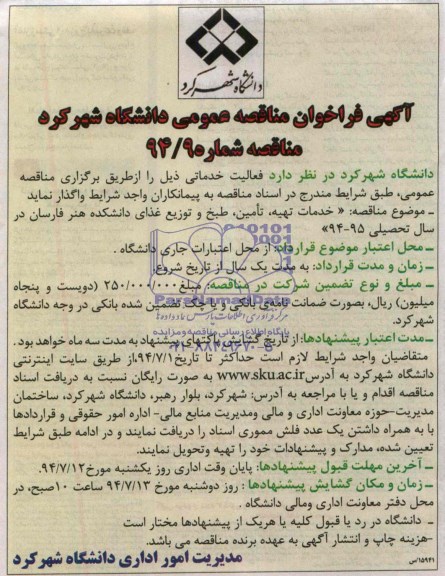 دانشگاه شهرکرد
آگهی فراخوان مناقصه عمومی دانشگاه شهرکرد
مناقصه شماره ۹۴/۹
دانشگاه شهرکرد در نظر دارد فعالیت خدماتی ذیل را ازطریق برگزاری مناقصه
عمومی، طبق شرایط مندرج در اسناد مناقصه به پیمانکاران واجد شرایط واگذار نماید
ـ موضوع مناقصه: « خدمات تهیه، تأمین، طبخ و توزیع غذای دانشکده هنر فارسان در
سال تحصیلی ۹۵-۹۴»
ـ محل اعتبار موضوع قرارداد: از محل اعتبارات جاری دانشگاه .
ـ زمان و مدت قرارداد: به مدت یک سال از تاریخ شروع.
ـ مبلغ و نوع تضمین شرکت در مناقصه: مبلغ ۲۵۰/۰۰۰/۰۰۰ (دویست و پنجاه
میلیون) ریال، بصورت ضمانت نامه‌ی بانکی و یا چک تضمین شده بانکی در وجه دانشگاه
شهرکرد.
ـ مدت اعتبار پیشنهادها: از تاریخ گشایش پاکتهای پیشنهاد به مدت سه ماه خواهد بود .
متقاضیان واجد شرایط لازم است حداکثر تا تاریخ ۹۴/۷/۱،از طریق سایت اینترنتی
دانشگاه شهرکرد به آدرس www.sku.ac.ir به صورت رایگان نسبت به دریافت اسناد
مناقصه اقدام و یا با مراجعه به آدرس: شهرکرد، بلوار رهبر، دانشگاه شهرکرد، ساختمان
مدیریت-حوزه معاونت اداری و مالی ومدیریت منابع مالی- اداره امور حقوقی و قراردادها
با به همراه داشتن یک عدد فلش مموری اسناد را دریافت نمایند و در ادامه طبق شرایط
تعیین شده، مدارک و پیشنهادات خود را تهیه وتحویل نمایند.
ـ آخرین مهلت قبول پیشنهادها: پایان وقت اداری روز یکشنبه مورخ ۹۴/۷/۱۲.
ـ زمان و مکان گشایش پیشنهادها : روز دوشنبه مورخ ۹۴/۷/۱۳ ساعت ۱۰صبح، در
محل دفتر معاونت اداری ومالی دانشگاه .
ـ دانشگاه در رد یا قبول کلیه یا هریک از پیشنهادها مختار است
-هزینه چاپ و انتشار آگهی به عهده برنده مناقصه می باشد.
۱۵۹۴۱/س
مدیریت امور اداری دانشگاه شهرکرد
ParsNamadData
پایگاه اطلاع رسانی مناقصه و مزایده